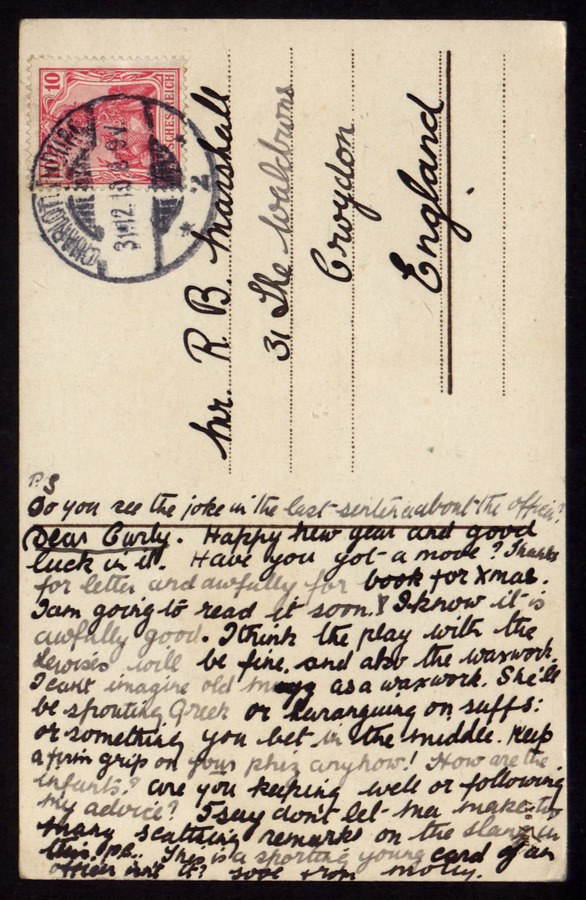 10
CHARLOTTENBURG
31.12.10. 8-9V.
2
Mr. R. B. Marshall
31 The Waldrons
Croydon
England
P.S
Do you see the joke in the last sentence about the officer?
Dear Curly. Happy New Year and good
luck in it. Have you got a move? Thanks
for letter and awfully for book for Xmas.
I am going to read it soon. I know it is
awfully good. I think the play with the
Lewises will be fine, and also the waxwork.
I can't imagine old as a waxwork. She'll
be spouting Greek or haranguing on suffs:
or something you bet in the middle. Keep
a firm grip on your phiz anyhow! How are the
infants? are you keeping well or following
my advice? I say don't let Ma make too
many scathing remarks on the slang in
this p.c. This is a sporting young card of an
officer isn't it? Love from Molly.